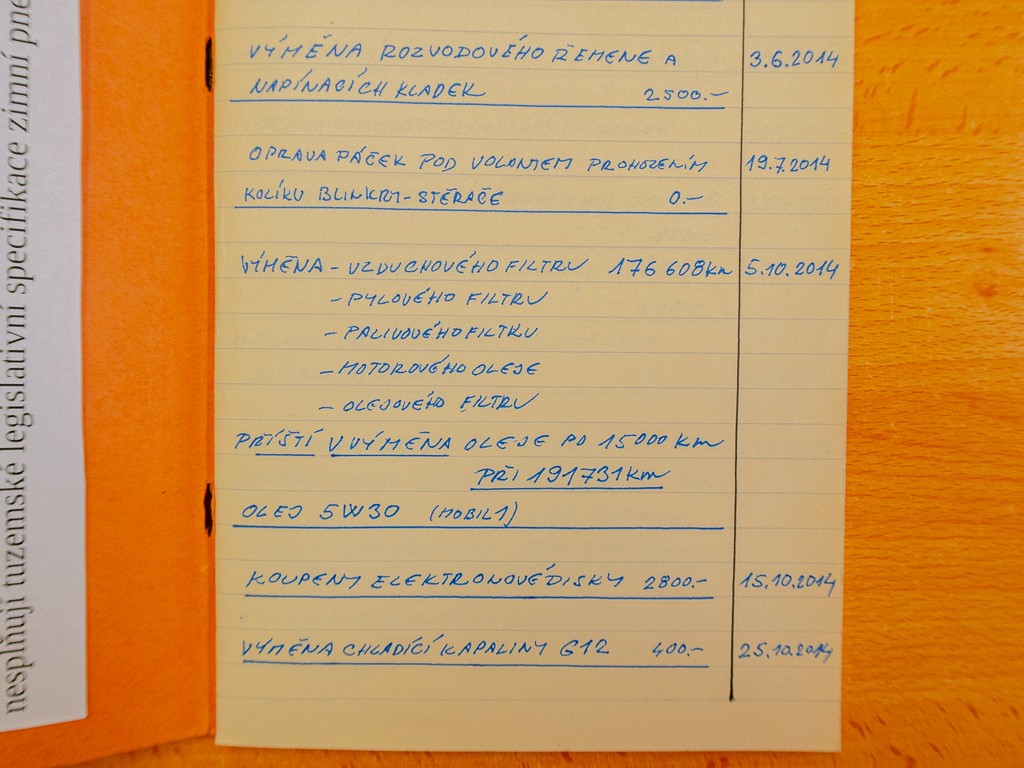 nesplňují tuzemské legislativní specifikace zimní pne
VÝMĚNA ROZVODOVÉHO ŘEMENE A 3.6.2014
NAPÍNACÍCH KLADEK 2500.-
OPRAVA PÁČEK POD VOLANTEM PROHOZENÍM 19.7.2014
KOLÍKU BLINKRY-STĚRAČE 0.-
VÝMĚNA - VZDUCHOVÉHO FILTRU 176 608km 5.10.2014
- PYLOVÉHO FILTRU
- PALIVOVÉHO FILTRU
- MOTOROVÉHO OLEJE
- OLEJOVÉHO FILTRU
PŘÍŠTÍ VVÝMĚNA OLEJE PO 15000 km
PŘI 191731km
OLEJ 5W30 (MOBIL1)
KOUPENY ELEKTRONOVÉ DISKY 2800.- 15.10.2014
VÝMĚNA CHLADÍCÍ KAPALINY G12 400.- 25.10.2014